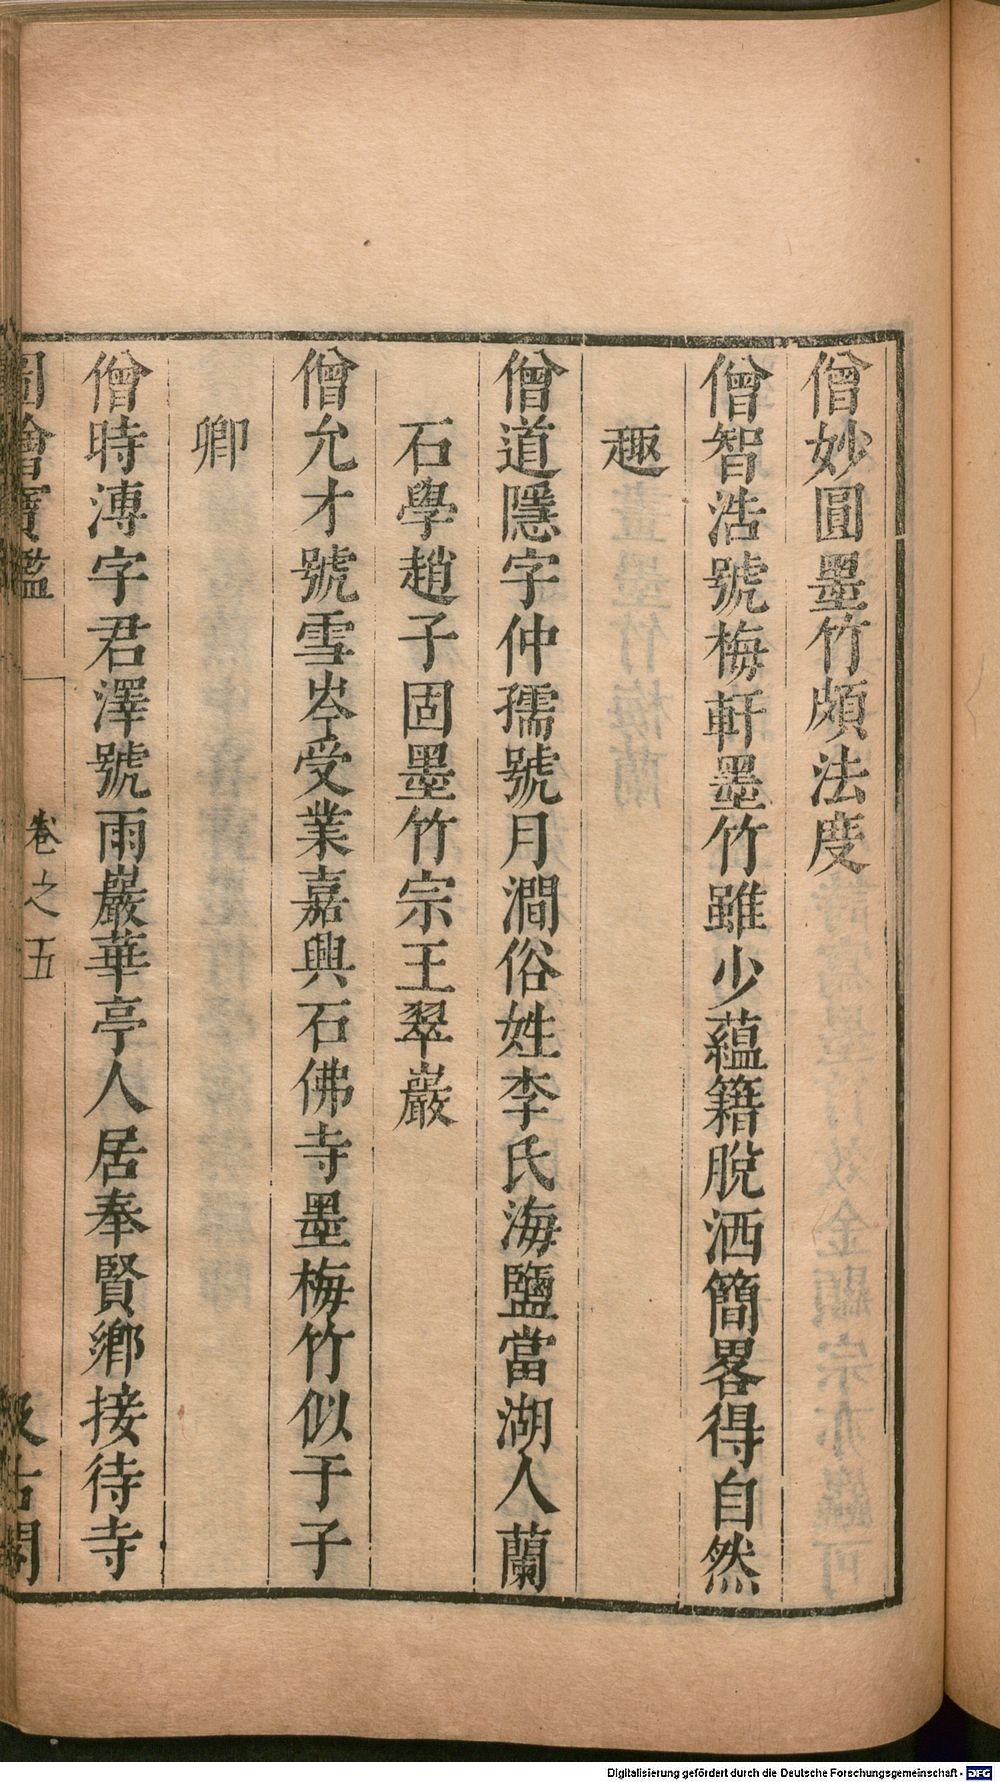 僧妙圓墨竹頗法度
僧智浩號梅軒墨竹雖少蘊籍脫洒簡畧得自然
趣
僧道隱字仲孺號月澗俗姓李氏海鹽當湖人蘭
石學趙子固墨竹宗王翠巖
僧允才號雪岑受業嘉興石佛寺墨梅竹似于子
卿
僧時溥字君澤號雨巖華亭人居奉賢鄉接待寺
圖繪寶鑑 卷之五 汲古閣
Digitalisierung gefördert durch die Deutsche Forschungsgemeinschaft - DFG